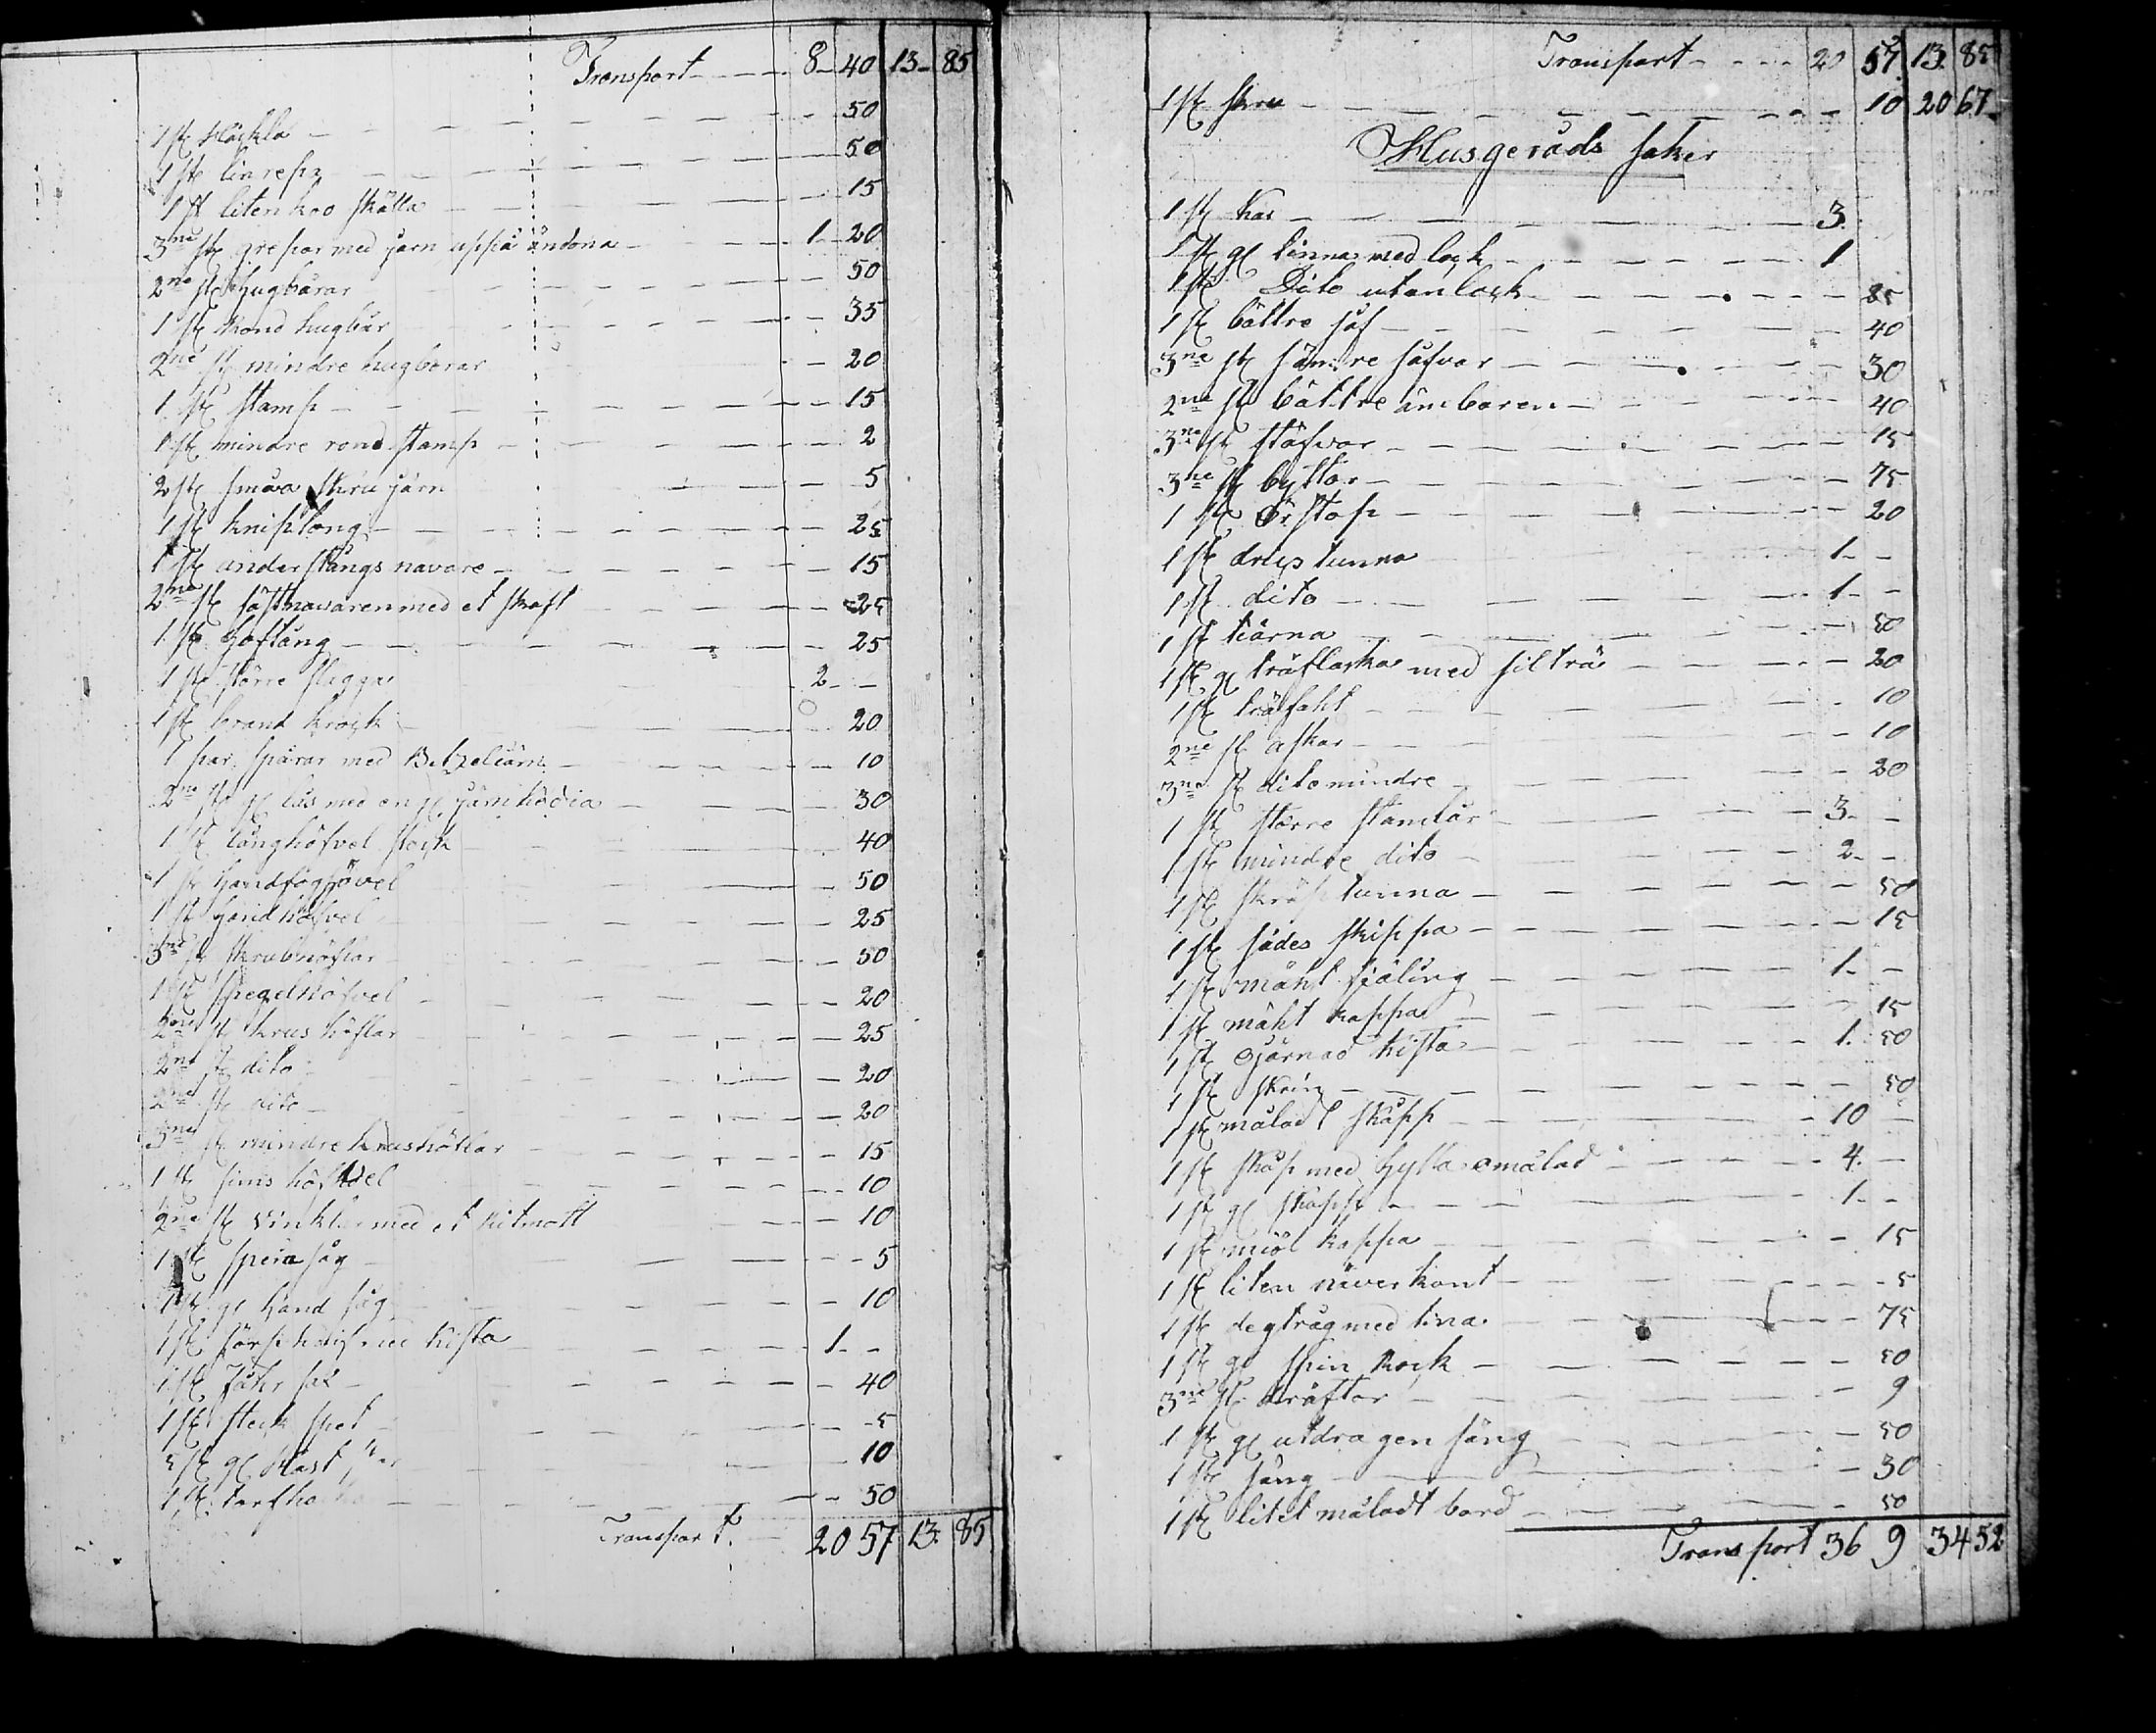 Transport 8 - 40 13 - 85
1 st Häckla 50
1 st linrep 50
1 st liten kro skälla 15
3ne st grepar med järn uppå ändona 1 - 20
2ne st hugbårar 50
1 st rond hugbår 35
2ne st mindre hugbårar 20
1 st stamp 15
1 st mindre rond stamp 2
2 st småa skru järn 5
1 st kniptong 25
1 st anderstångs navare 15
2ne st fästnavaren med et skaft 25
1 st hoftång 25
1 st större slegga 2 -
1 st brand krock 20
1 par sparar med 10
2ne st gl lås med en gl järnkädia 30
1 st långhöfvel stock 40
1 st handfoghövel 50
1 st handhöfvel 25
3ne st skrubhöflar 50
1 st spegelhöfvel 20
2ne st krus höflar 25
2ne st dito 20
2ne st dito 20
3ne st mindre krushöflar 15
1 st sims höfvel 10
2ne st vinklar med et kitmott 10
1 st sperasåg 5
1 st gl hand såg 10
1 st kista 1 -
1 st 40
1 st steck spet 5
5 st gl Häst 10
1 st torfhacka 50
Transport. 20 57 13. 85
Transport 20 57 13. 85
1 st skru 10 20 67
Husgeråds saker
1 st kar 3.
1 st gl tinna med lock 1
1 st Dito utan lock 85
1 st bättre såf 40
3ne st sämre såfvar 30
2ne st bättre ämbaren 40
3ne st stäfvor 15
3ne st byttor 75
1 st Örstop 20
1 st drics tunna 1 -
1 st dito 1 -
1 st tiärna 50
1 st gl träflaska med silträ 20
1 st träfaht 10
2ne st askar 10
3ne st dito mindre 20
1 st större standlår 3 -
1 st mindre dito 2 -
1 st skräptunna 50
1 st sädes skippa 15
1 st mäht fiäling 1 -
1 st mäht kappa 15
1 st Gjärnad kista 1. 50
1 st skrin 50
1 st målad t skåpp 10 -
1 st skåp med hylla omålad 4. -
1 st gl skåpp 1 -
1 st miöl kappa 15
1 st liten näverkont 5
1 st degtråg med tina 75
1 st gl spin rock 50
3ne st kräftor 9
1 st gl utdragen säng 50
1 st säng 30
1 st litet måladt bord 50
Transport 36 9 34 52